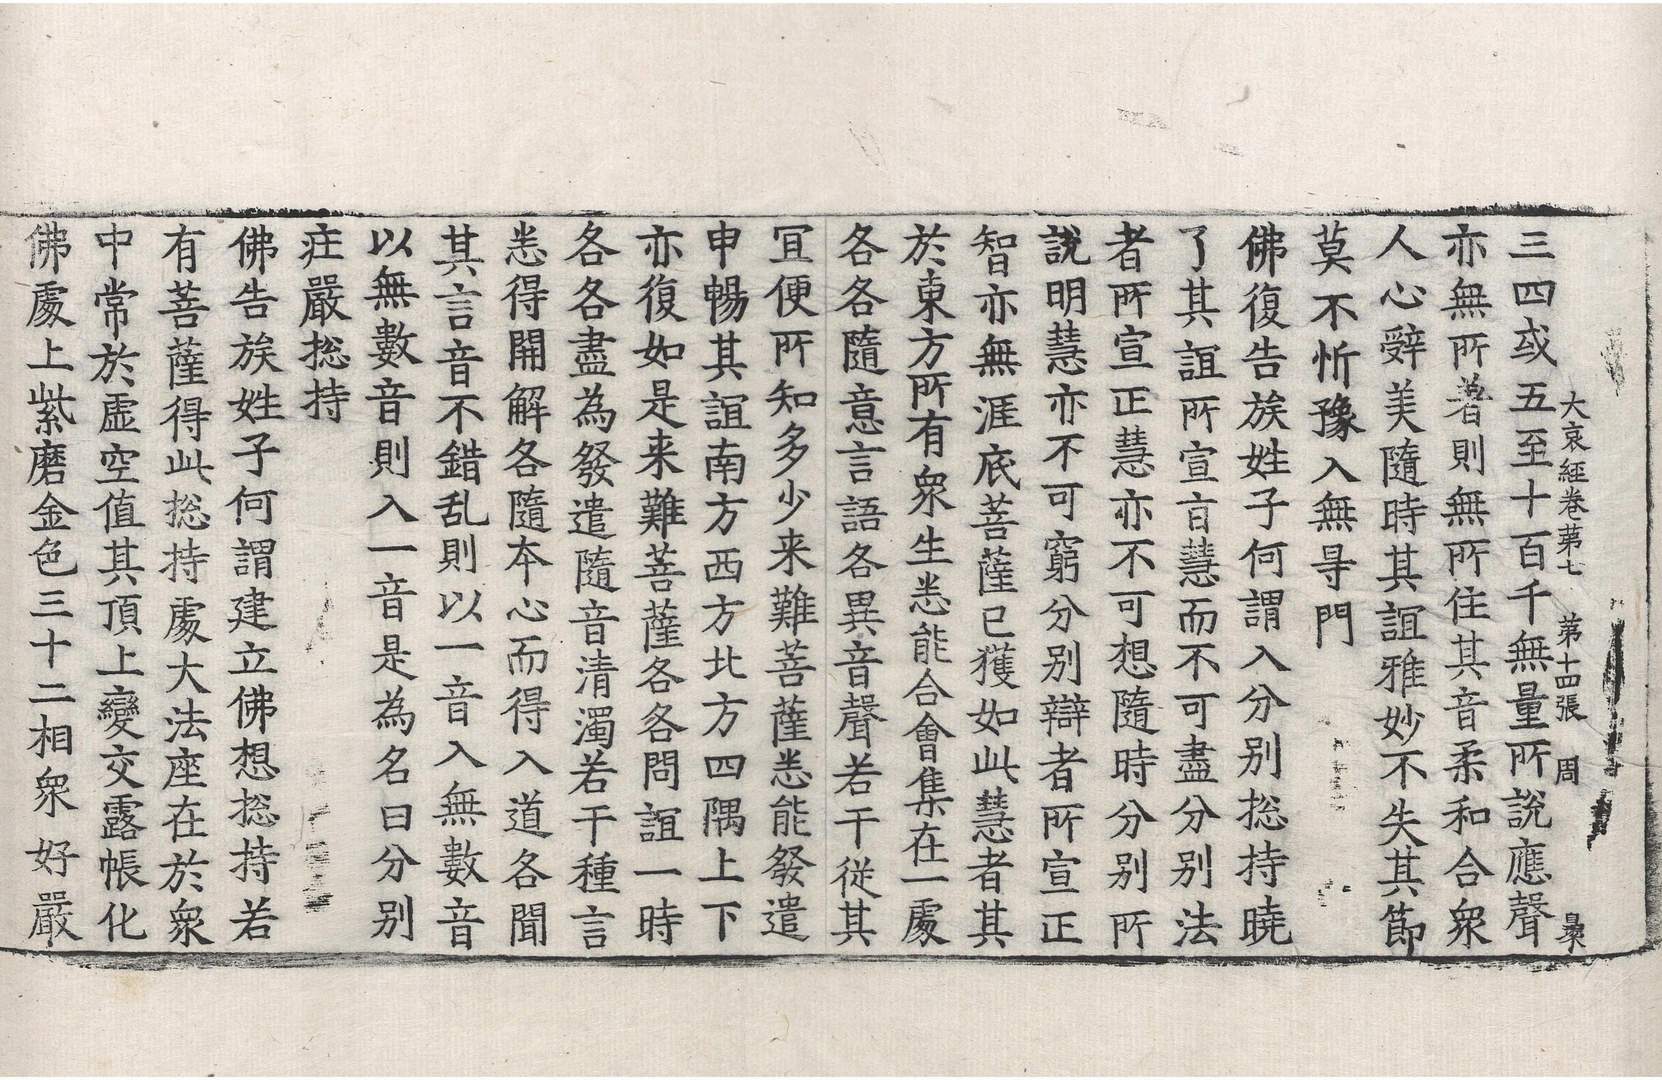 大哀經卷苐七　第十四張　周
三四或五至十百千無量所說應聲
亦無所著則無所住其音柔和合衆
人心辭美隨時其誼雅妙不失其節
莫不忻豫入無㝵門
佛復告族姓子何謂入分別揔持曉
了其誼所宣言慧而不可盡分別法
者所宣正慧亦不可想隨時分別所
說明慧亦不可窮分別辯者所宣正
智亦無涯底菩薩已獲如此慧者其
於東方所有衆生悉能合會集在一處
各各隨意言語各異音聲若干從其
冝便所知多少来難菩薩悉能發遣
申暢其誼南方西方北方四隅上下
亦復如是来難菩薩各各問誼一時
各各盡為發遣隨音清濁若干種言
悉得開解各隨夲心而得入道各聞
其言音不錯乱則以一音入無數音
以無數音則入一音是為名曰分別
疘嚴揔持
佛告族姓子何謂建立佛想揔持若
有菩薩得此揔持處大法座在於衆
中常於虛空值其頂上變交露帳化
佛處上紫磨金色三十二相衆好嚴